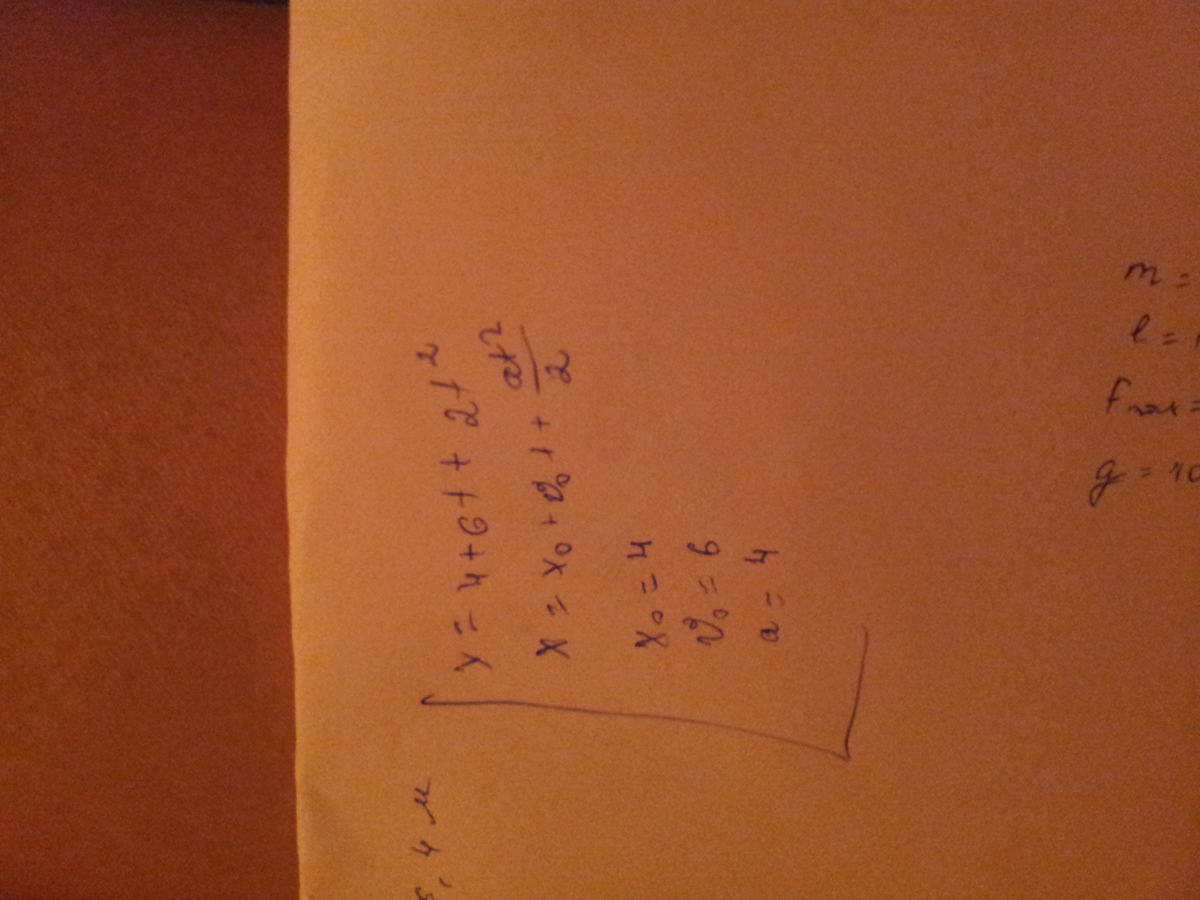 y = 4 + 6t + 2t²
x = x₀ + v₀t + at²/2
x₀ = 4
v₀ = 6
a = 4
4 м
m =
l =
Fmax =
g = 10